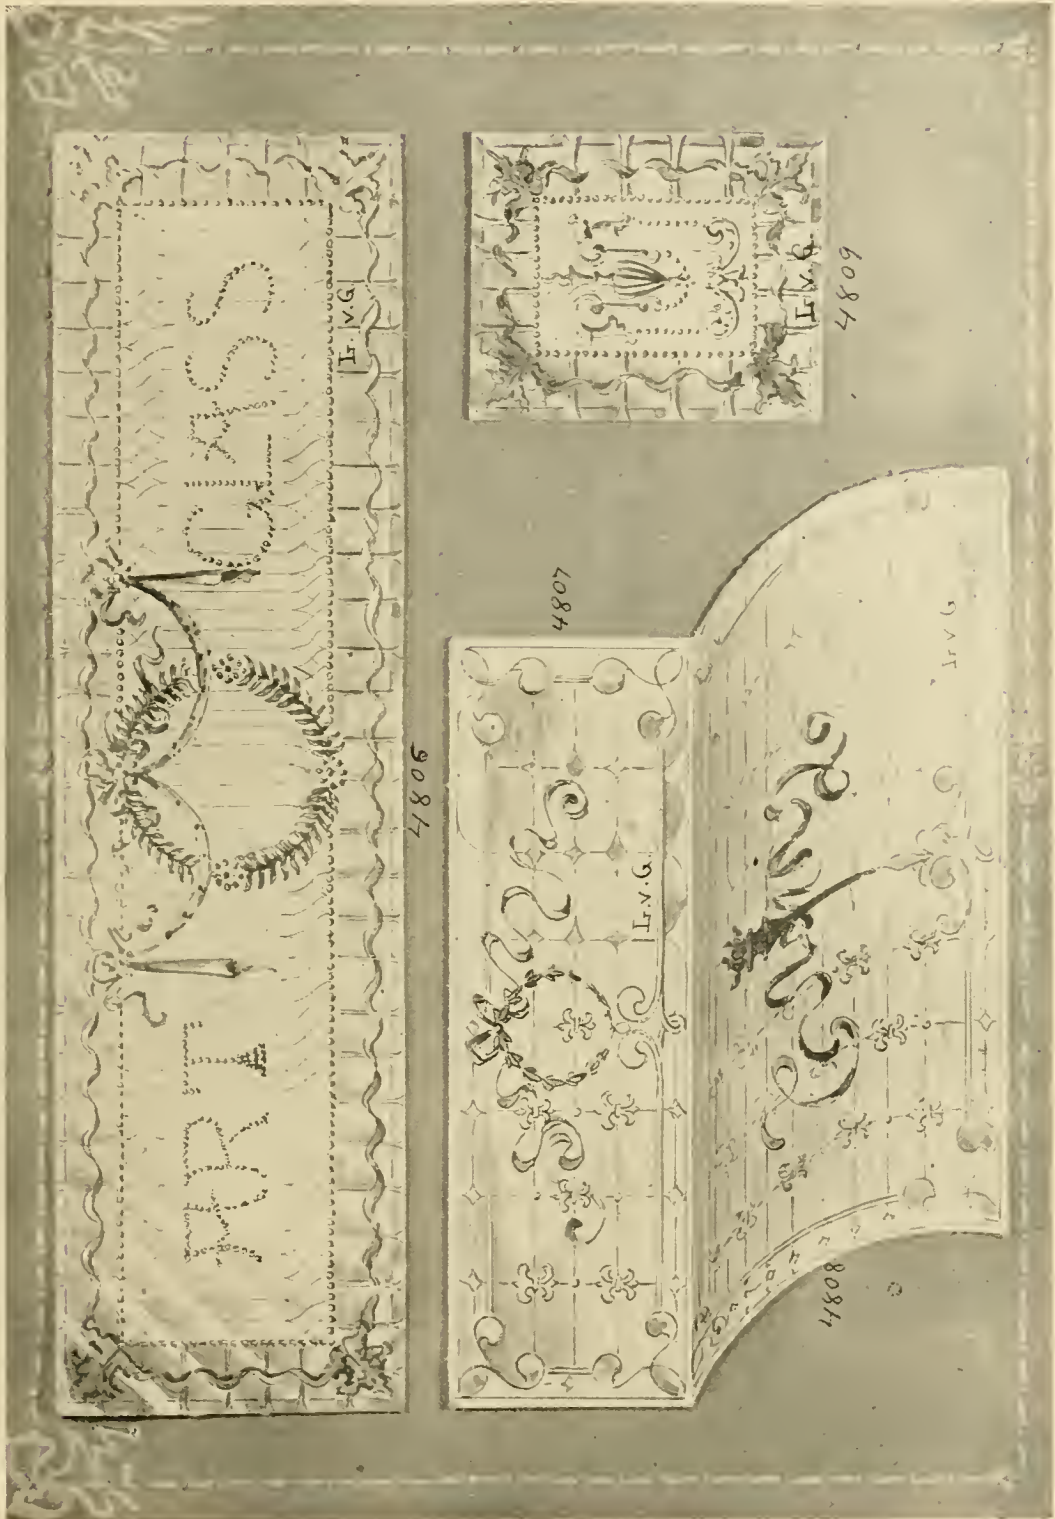 ART GLASS
L. v. G.
4806
L. v. G.
4809
4807
L. v. G.
L. v. G
4808